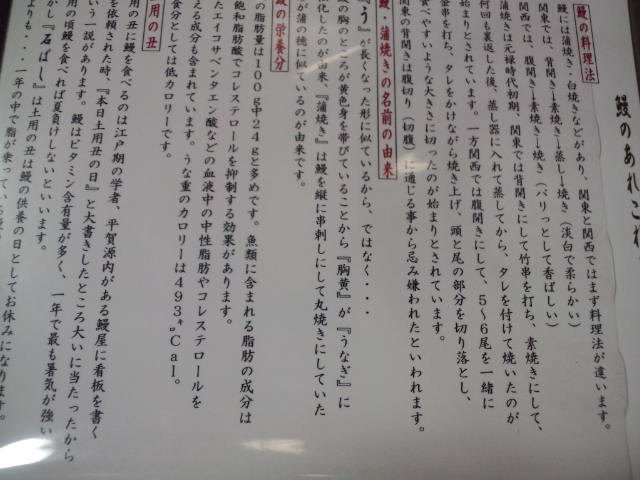 鰻のあれこれ
鰻の料理法
鰻には蒲焼き・白焼きなどがあり、関東と関西ではまず料理法が違います。
関東では、背開き→素焼き→蒸し→焼き（淡白で柔らかい）
関西では、腹開き→素焼き→焼き（パリっとして香ばしい）
蒲焼きは元禄時代初期、関東では背開きにして竹串を打ち、素焼きにして、
何回も裏返した後、蒸し器に入れて蒸してから、タレを付けて焼いたのが
始まりとされています。一方関西では腹開きにして、5〜6尾を一緒に
金串を打ち、タレをかけながら焼き上げ、頭と尾の部分を切り落とし、
食べやすいような大きさに切ったのが始まりとされています。
関東の背開きは腹切り（切腹）に通じる事から忌み嫌われたといわれます。
鰻・蒲焼きの名前の由来
『う』が長くなった形に似ているから、ではなく・・・
の胸のところが黄色身を帯びていることから『胸黄』が『うなぎ』に
化したのが由来。『蒲焼き』は鰻を縦に串刺しにして丸焼きにしていた
が蒲の穂に似ているのが由来です。
鰻の栄養分
の脂肪量は100g中24gと多めです。魚類に含まれる脂肪の成分は
飽和脂肪酸でコレステロールを抑制する効果があります。
たエイコサペンタエン酸などの血液中の中性脂肪やコレステロールを
える成分も含まれています。うな重のカロリーは493㌔Cal。
食分としては低カロリーです。
用の丑
用の丑に鰻を食べるのは江戸期の学者、平賀源内がある鰻屋に看板を書く
を依頼された時、『本日土用丑の日』と大書きしたところ大いに当たったから
いう一説があります。鰻はビタミン含有量が多く、一年で最も暑気が強い
用の頃鰻を食べれば夏負けしないといいます。
かし『石ばし』は土用の丑は鰻の供養の日としてお休みになります。
よりも・・・一年の中で脂が乗っている